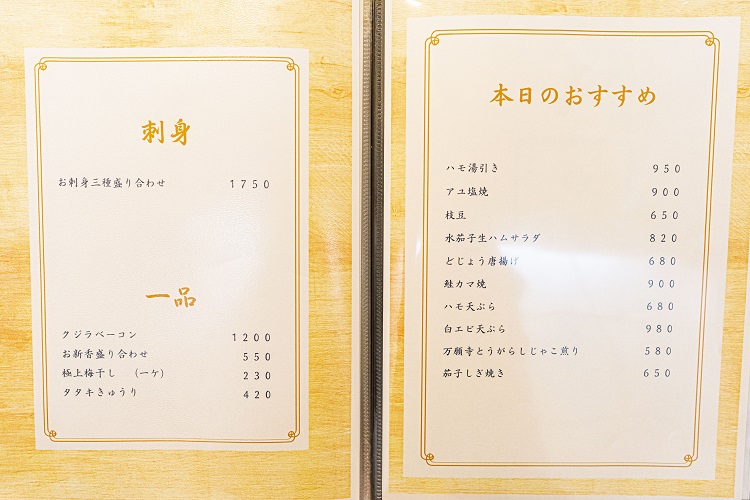 刺身
お刺身三種盛り合わせ 1750
一品
クジラベーコン 1200
お新香盛り合わせ 550
極上梅干し (一ケ) 230
タタキきゅうり 420
本日のおすすめ
ハモ湯引き 950
アユ塩焼 900
枝豆 650
水茄子生ハムサラダ 820
どじょう唐揚げ 680
鮭カマ焼 900
ハモ天ぷら 680
白エビ天ぷら 980
万願寺とうがらしじゃこ煎り 580
茄子しぎ焼き 650